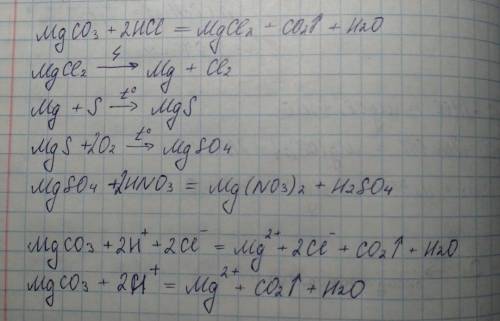 MgCO3 + 2HCl = MgCl2 + CO2↑ + H2O
MgCl2 →(ϟ) Mg + Cl2
Mg + S →(t°) MgS
MgS + 2O2 →(t°) MgSO4
MgSO4 + 2HNO3 = Mg(NO3)2 + H2SO4
MgCO3 + 2H⁺ + 2Cl⁻ = Mg²⁺ + 2Cl⁻ + CO2↑ + H2O
MgCO3 + 2H⁺ = Mg²⁺ + CO2↑ + H2O